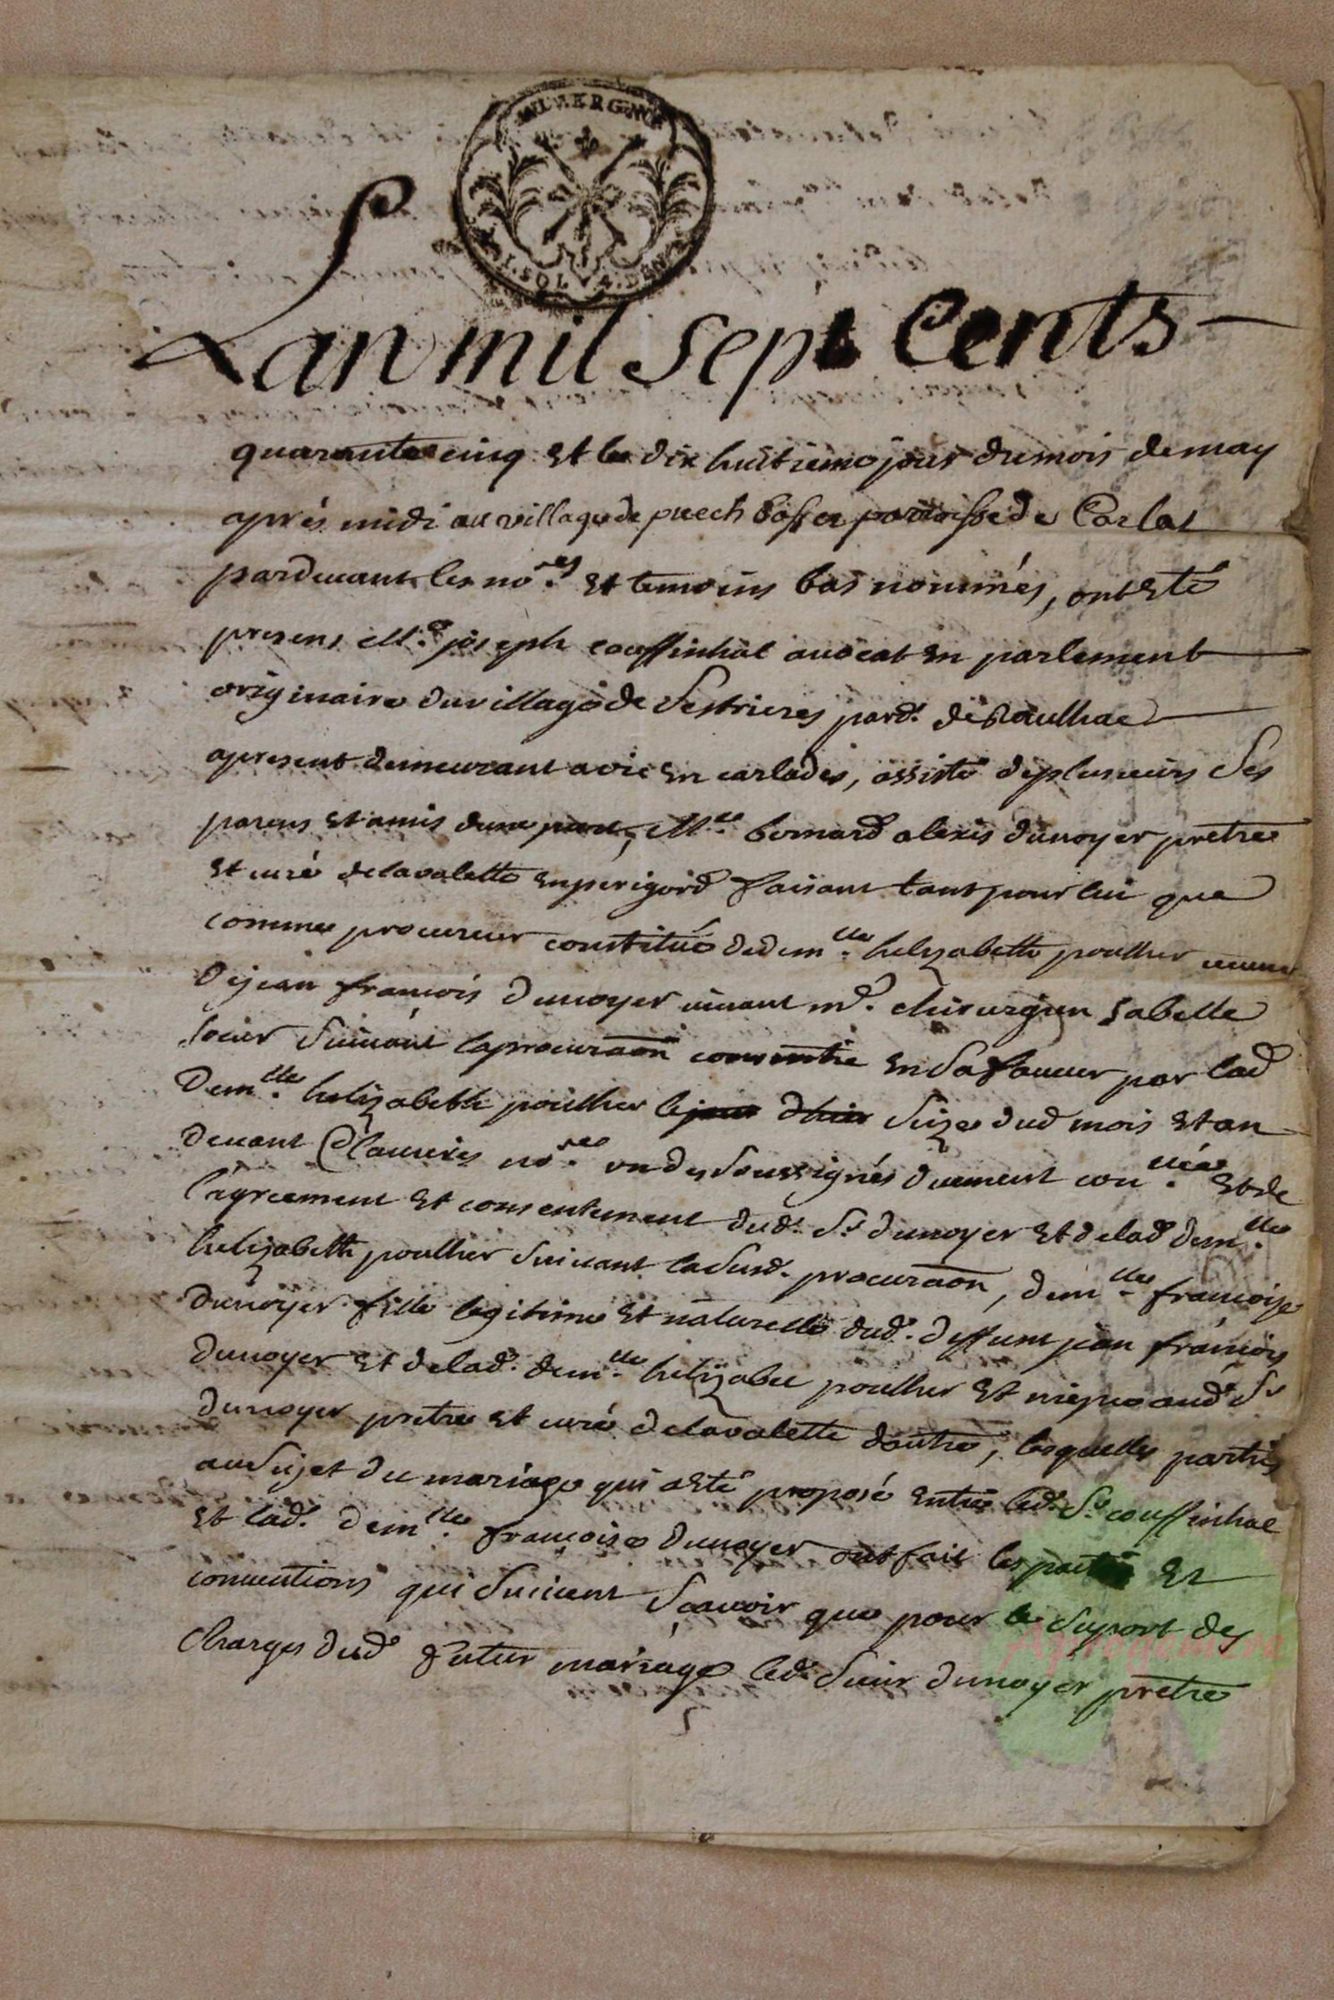 AUVERGNE
SOL 4 DEN
Lan mil Sept Cents
quarante cinq et le dix huitieme jour dumois demay
aprés midi au village de puech basset parroisse de Carlat
pardevant les no.res et temoins bas nommés, ont eté
presens Me. joseph couffinhal avocat en parlement
originaire du village de Vestrieres parr. de Raulhac
apresent demeurant a vic en carladés, assisté deplusieurs Ses
parens et amis dune part, M.re bernard alexis dunoyer prêtre
et curé delavalette enperigord faisant tant pour lui que
comme procureur constitué dedem.lle helizabette poulher veuve
dejean françois dunoyer vivant md. chirurgien sabelle
soeur Suivant laprocuraôn consentie en Sa faveur par lad
dem.lle helizabeth poulher lejour dhier Seize dud mois et an
devant Clavieres no.re un des soussignés duement con.llée et de
l'agreement et consentement dud. Sr dunoyer et delad dem.lle
helizabette poulher Suivant laSusd. procuraôn, dem.lle françoize
dunoyer fille legitime et naturelle dud. deffunt jean françois
dunoyer et delad. dem.lle helizabee poulher et niepce aud. Sr
dunoyer pretre et curé delavalette dautre, lesquelles parties
au Sujet du mariage qui a eté proposé entre led. Sr couffinhal
et lad. dem.lle françoise dunoyer ont fait les pactes et
conventions qui Suivent Sçavoir que pour le Suport des
charges dud futur mariage led. Sieur dunoyer prêtre
Aprogemere